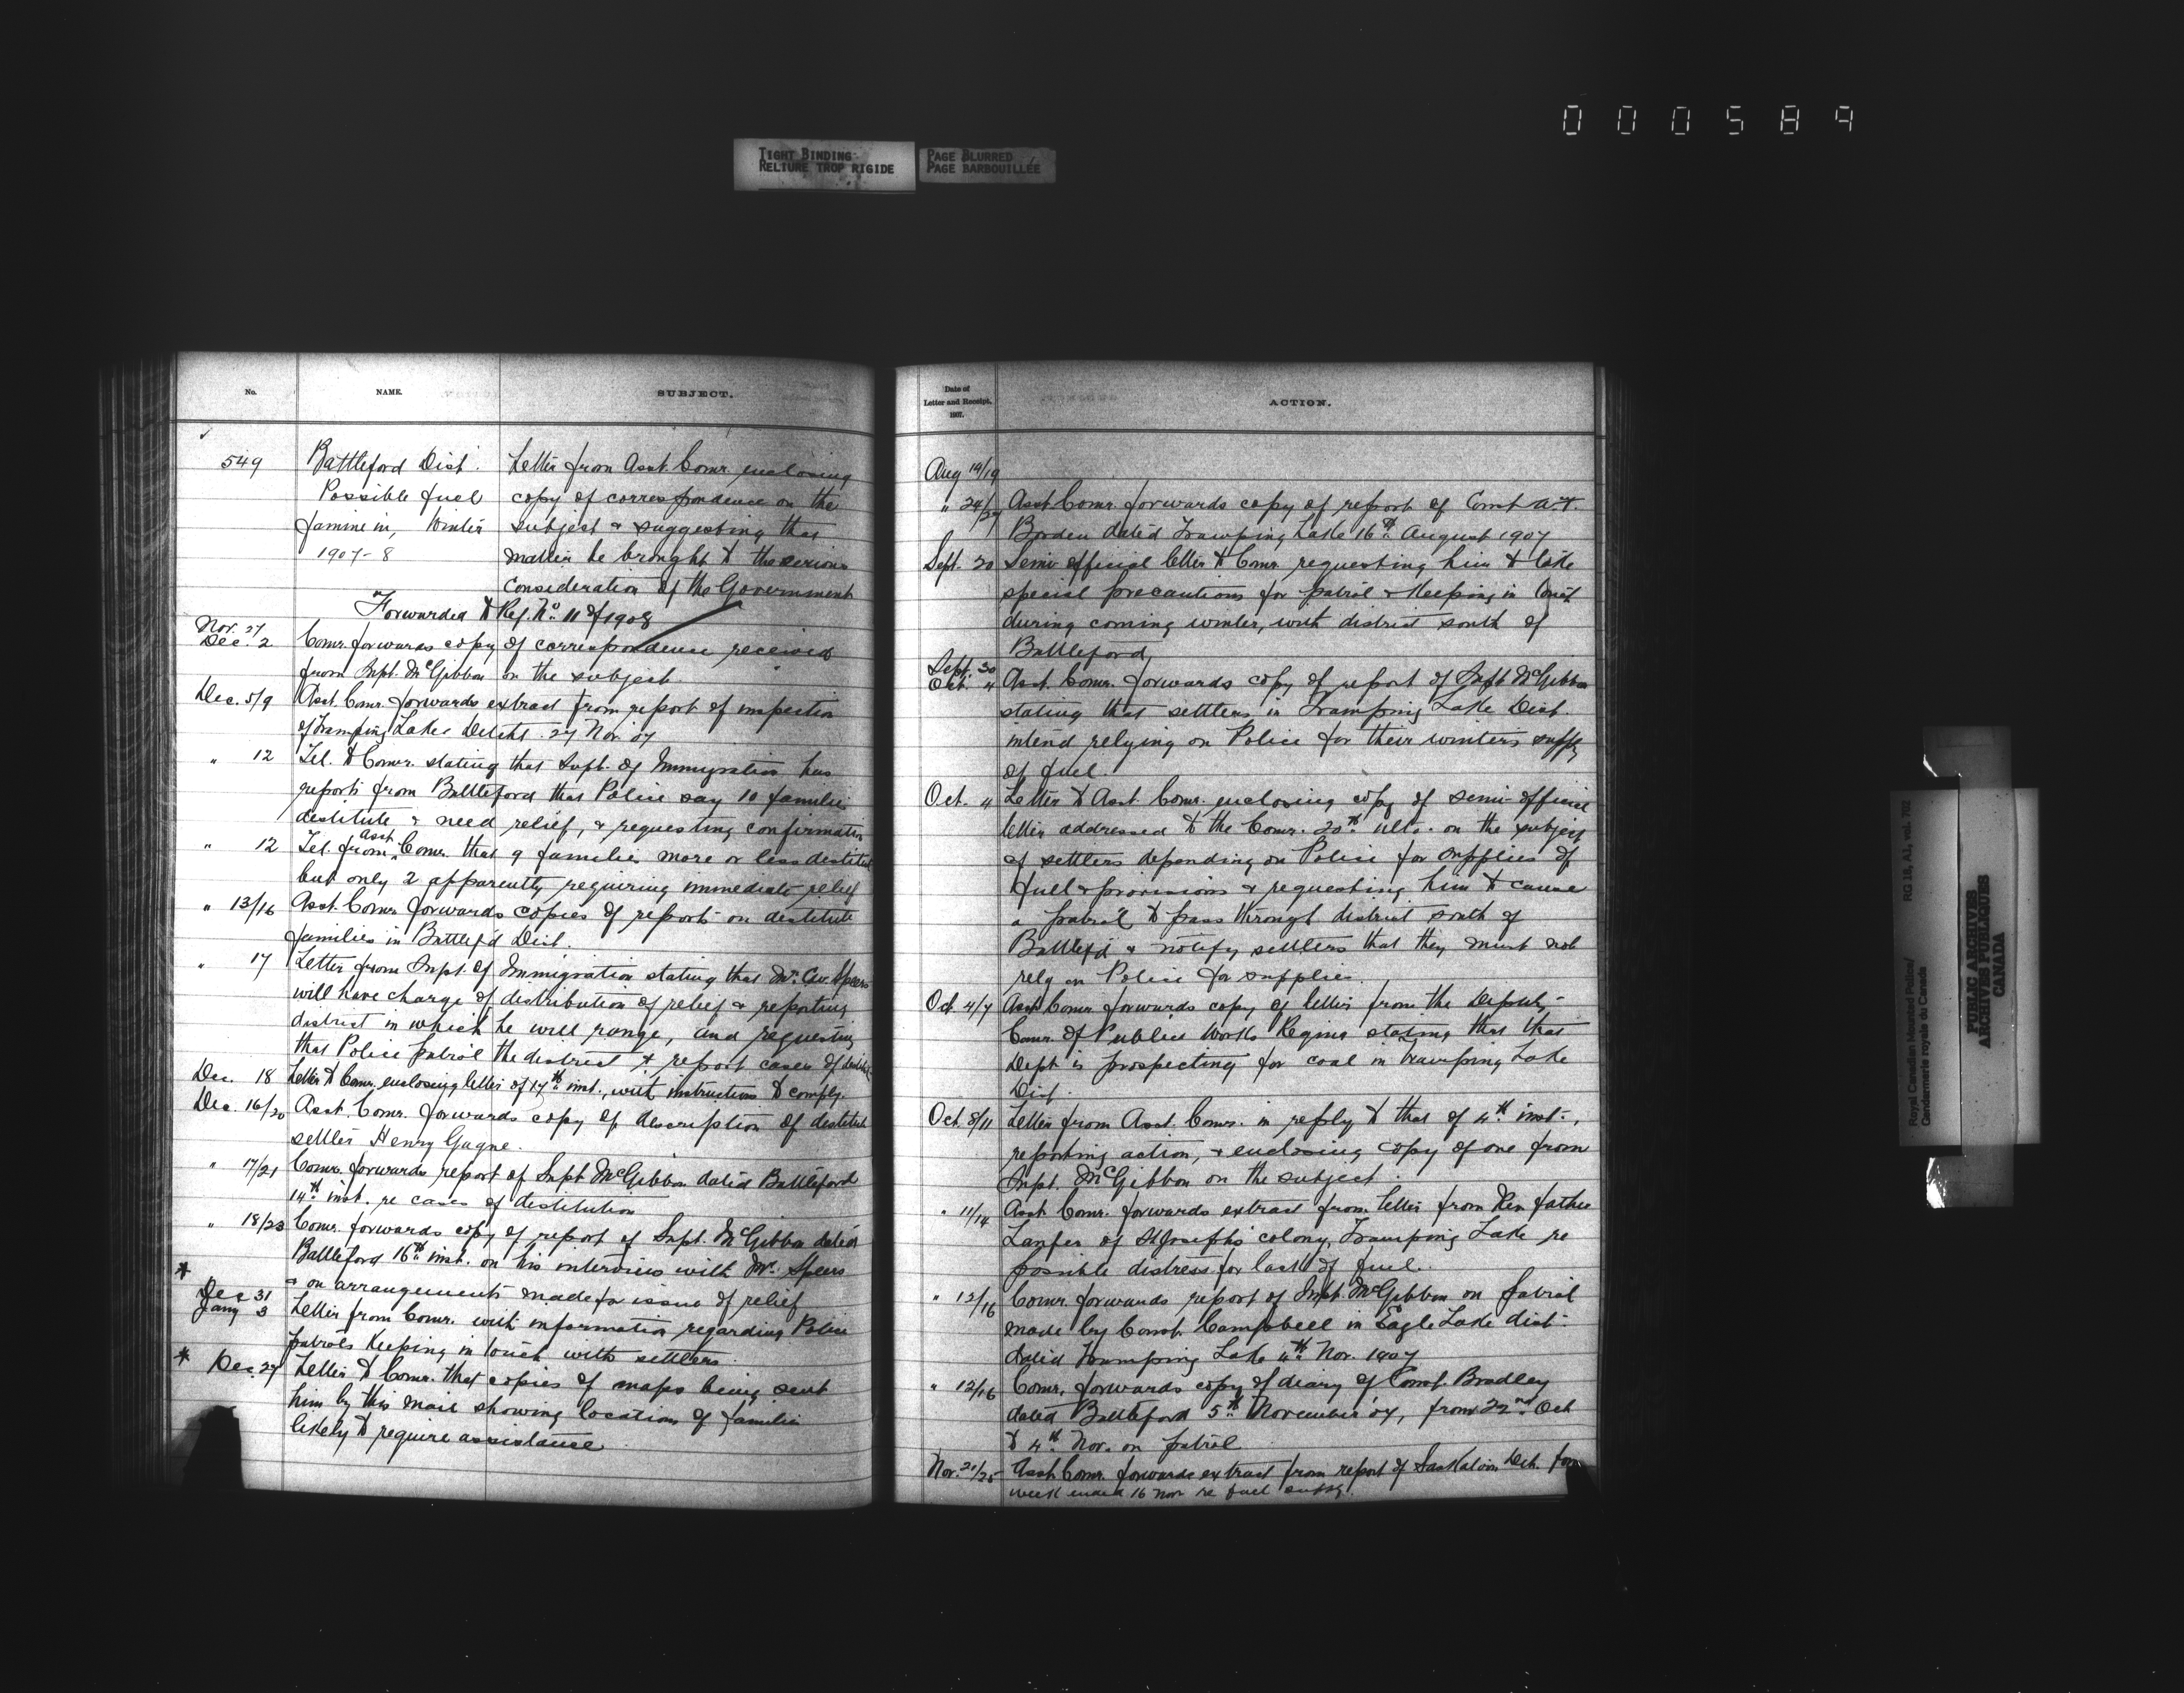 000589
TIGHT BINDING
RELIURE TROP RIGIDE
PAGE BLURRED
PAGE BARBOUILLÉE
No. NAME. SUBJECT.
549 Battleford Dist. Letter from Asst. Comr. enclosing
Possible fuel copy of correspondence on the
famine in, Winter subject & suggesting that
1907-8 matter be brought to the serious
consideration of the Government
Forwarded to Reg. No 11 of 1908
Nov. 27
Dec. 2 Comr. forwards copy of correspondence received
from Inpt. McGibbon on the subject.
Dec. 5/9 Asst. Comr. forwards extract from report of inspection
of Tramping Lake Detcht. 27 Nov. 07
" 12 Tel. to Comr. stating that Supt. of Immigration has
reports from Battleford that Police say 10 families
destitute & need relief, & requesting confirmation
" 12 Tel. from Asst. Comr. that 9 families more or less destitute
but only 2 apparently requiring immediate relief
" 13/16 Asst. Comr. forwards copies of reports on destitute
families in Battlef'd Dist.
" 17 Letter from Supt. of Immigration stating that Mr. Speers
will have charge of distribution of relief & reporting
district in which he will range, and requesting
that Police patrol the district & report cases of
Dec. 18 Letter to Comr. enclosing letter of 17th inst., with instructions to comply.
Dec. 16/20 Asst. Comr. forwards copy of description of destitute
settler Henry Gagne.
" 17/21 Comr. forwards report of Inpt. McGibbon dated Battleford
14th inst. re cases of destitution
" 18/23 Comr. forwards copy of report of Inpt. McGibbon dated
Battleford 16th inst. on his interview with Mr. Speers
* & on arrangements made for issue of relief
Dec 31
Jany 3 Letter from Comr. with information regarding Police
patrols keeping in touch with settlers.
* Dec. 27 Letter to Comr. that copies of maps being sent
him by this mail showing locations of families
likely to require assistance
Date of
Letter and Receipt.
1907.
ACTION.
Aug 14/19
" 24/27 Asst. Comr. forwards copy of report of Const. A.T.
Borden dated Tramping Lake 16th August 1907
Sept. 20 Semi-official letter to Comr. requesting him to take
special precautions for patrol & keeping in touch
during coming winter, with district south of
Battleford
Sept. 30
Oct. 4 Asst. Comr. forwards copy of report of Inpt. McGibbon
stating that settlers in Tramping Lake Dist.
intend relying on Police for their winters supply
of fuel.
Oct. 4 Letter to Asst. Comr. enclosing copy of semi-official
letter addressed to the Comr. 20th ulto. on the subject
of settlers depending on Police for supplies of
fuel & provisions & requesting him to cause
a patrol to pass through district south of
Battlef'd & notify settlers that they must not
rely on Police for supplies
Oct. 4/7 Asst. Comr. forwards copy of letter from the Deputy
Comr. of Public Works Regina stating that that
Dept. is prospecting for coal in Tramping Lake
Dist.
Oct. 8/11 Letter from Asst. Comr. in reply to that of 4th inst.,
reporting action, & enclosing copy of one from
Inpt. McGibbon on the subject.
" 11/14 Asst. Comr. forwards extract from letter from Rev. father
of St. Joseph's colony, Tramping Lake re
possible distress for lack of fuel.
" 12/16 Comr. forwards report of Inpt. McGibbon on patrol
made by Const. Campbell in Eagle Lake dist.
dated Tramping Lake 4th Nov. 1907
" 12/16 Comr. forwards copy of diary of Const. Bradley
dated Battleford 5th November 07, from 22nd Oct
to 4th Nov. on patrol
Nov. 21/25 Asst. Comr. forwards extract from report of Saskatoon Det. for
week ended 16 Nov re fuel supply.
Royal Canadian Mounted Police/
Gendarmerie royale du Canada
RG 18, A1, vol. 702
PUBLIC ARCHIVES
ARCHIVES PUBLIQUES
CANADA